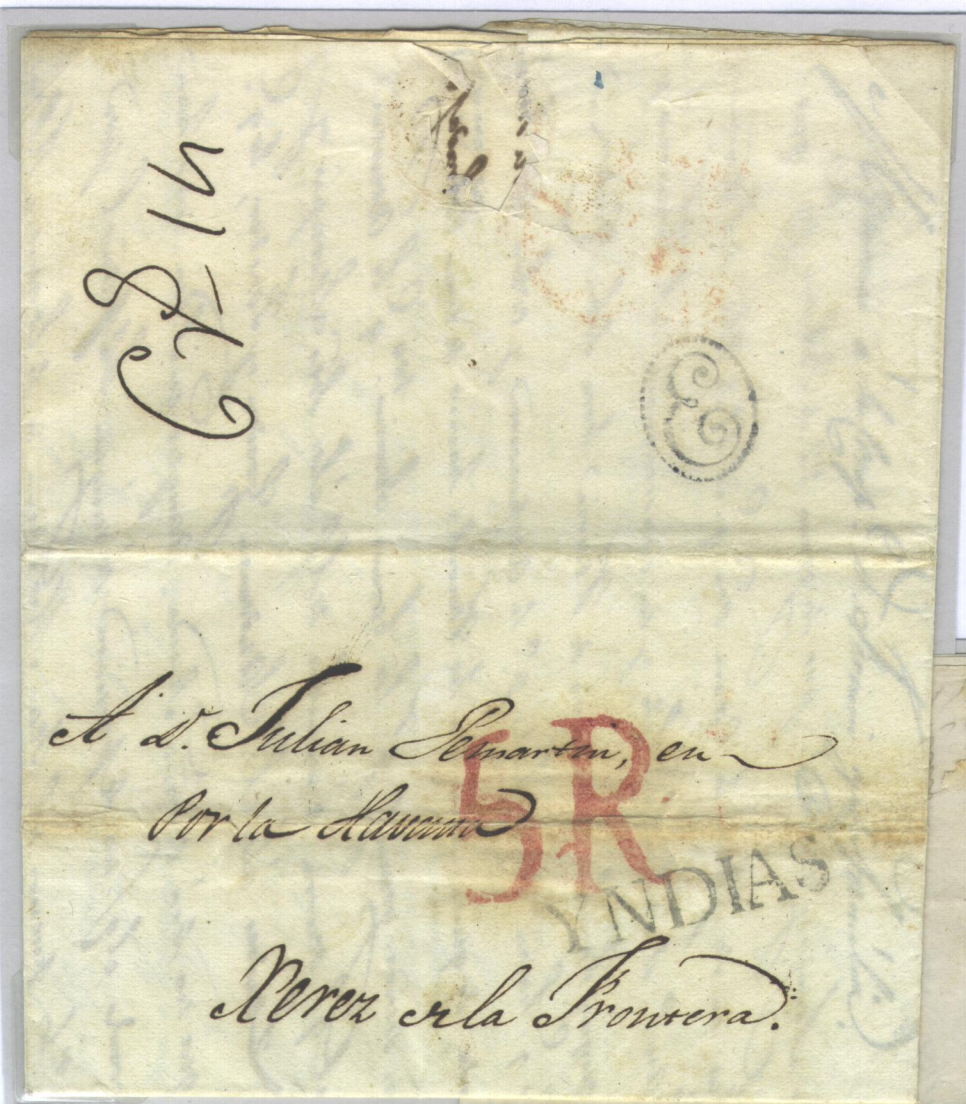 E
A D. Julian Pemartin, en
Por la Havana
5R
YNDIAS
Xerez de la Frontera.